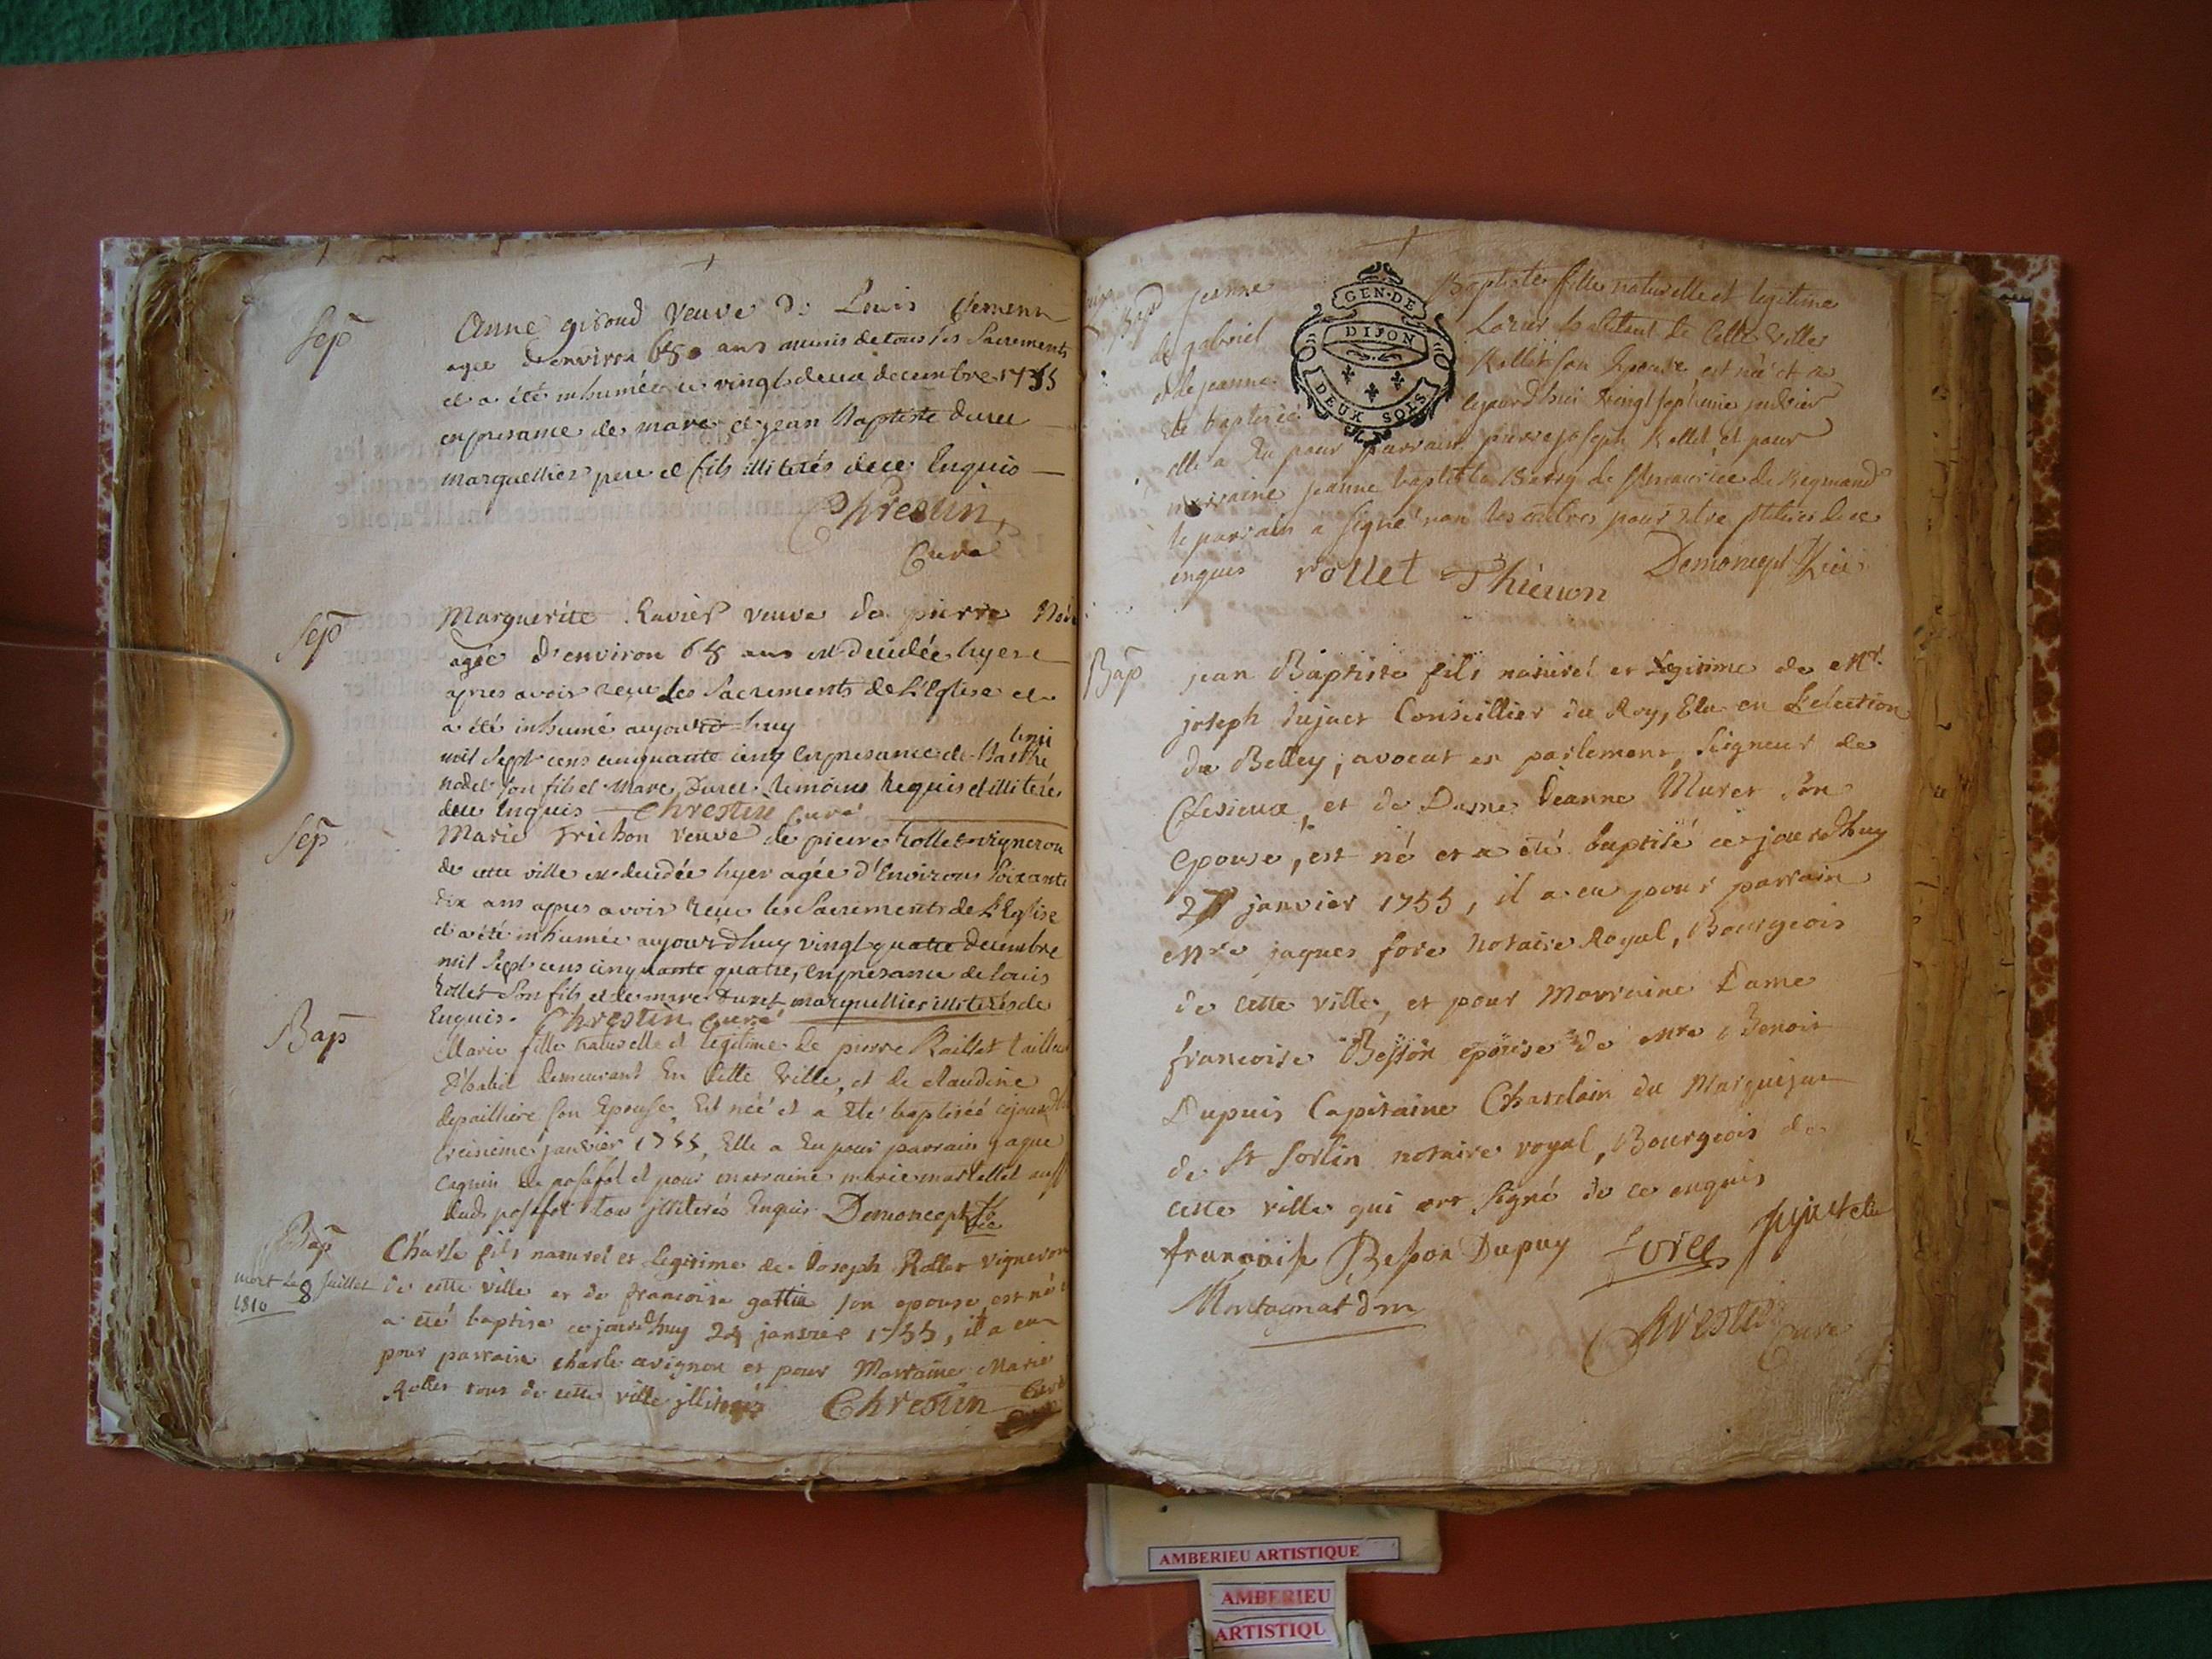 Sep
Anne giroud veuve de Louis
agée denviron ans munis de tous les Sacrements
et a été inhumée ce vingt deux decembre
en presance de marc et jean Baptiste duret
marguelliers pere et fils illiterés de ce Enquis
Chrestin
Curé
Sep
Marguerite Ravier veuve de pierre
agée d'environ 68 ans est decidée hyere
apres avoir reçu les Sacrements de L'Eglise et
a été inhumé aujourd-huy
mil Sept cens cinquante cinq en presance de
son fils et Marc Duret temoins Requis et illiterés
dece Enquis Chrestin Curé
Sep
Marie trichon veuve de pierre Rollet vigneron
de cette ville est decidée hyer agée d'Environ Soixante
dix ans apres avoir reçu les Sacrements de L'Eglise
et a été inhumée aujourdhuy vingt quatre decembre
mil Sept cens cinquante quatre, en presance de louis
Rollet Son fils et de marc Duret marguellier illiterés de
Enquis. Chrestin Curé
Bap
Marie fille naturelle et legitime de pierre Raillet tailleur
d'habit demeurant En Cette Ville, et de claudine
depailliere son Epouse, Est née et a Eté baptisée
treisieme janvier 1755, Elle a Eu pour parrain jaque
cagnin de posafol et pour marraine marie martellet
dud posafol tous jlliterés Enquis Demoncept Vic
Bap
Charle fils naturel et legitime de Joseph Rollet vigneron
mort le 8 juillet 1810
de cette ville et de francoise gottin son epouse, est né
a été baptise ce jourdhuy 24 janvier 1755, il a eu
pour parrain charle avignon et pour Marraine Marie
Rollet tous de cette ville jlliterés Chrestin Curé
Bap
jeanne Baptiste fille naturelle et legitime
de gabriel habitant de Cette Ville
et de jeanne Rollet son Epouse, est née et a
été baptisée cejourdhui vingt septieme janvier
GEN·DE
DIJON
DEUX SOLS
elle a Eu pour parrain pierre joseph Rollet et pour
marraine jeanne baptiste Barry de st maurice de Regmand
le parrain a signé non les autres pour etre jlliterés de ce
enquis rollet Thienon Demoncept Vic
Bap
jean Baptiste fils naturel et Legitime de Mr
joseph dujact Conseillier du Roy, Elu en L'election
du Belley; avocat en parlement, Seigneur de
et de Dame Jeanne Muret son
epouse, est né et a été baptisé ce jourdhuy
27 janvier 1755, il a eu pour parrain
Mre jaques fore notaire Royal, Bourgeois
de cette ville, et pour Marraine Dame
francoise Besson epouse de Mre Benoit
Dupuis Capitaine Chatelain du Marquisat
de St Sorlin notaire royal, Bourgeois de
cette ville qui ont signé de ce enquis
francoise Besson Dupuy forer
Montagnat dm Chrestin Curé
AMBERIEU ARTISTIQUE
AMBERIEU
ARTISTIQU